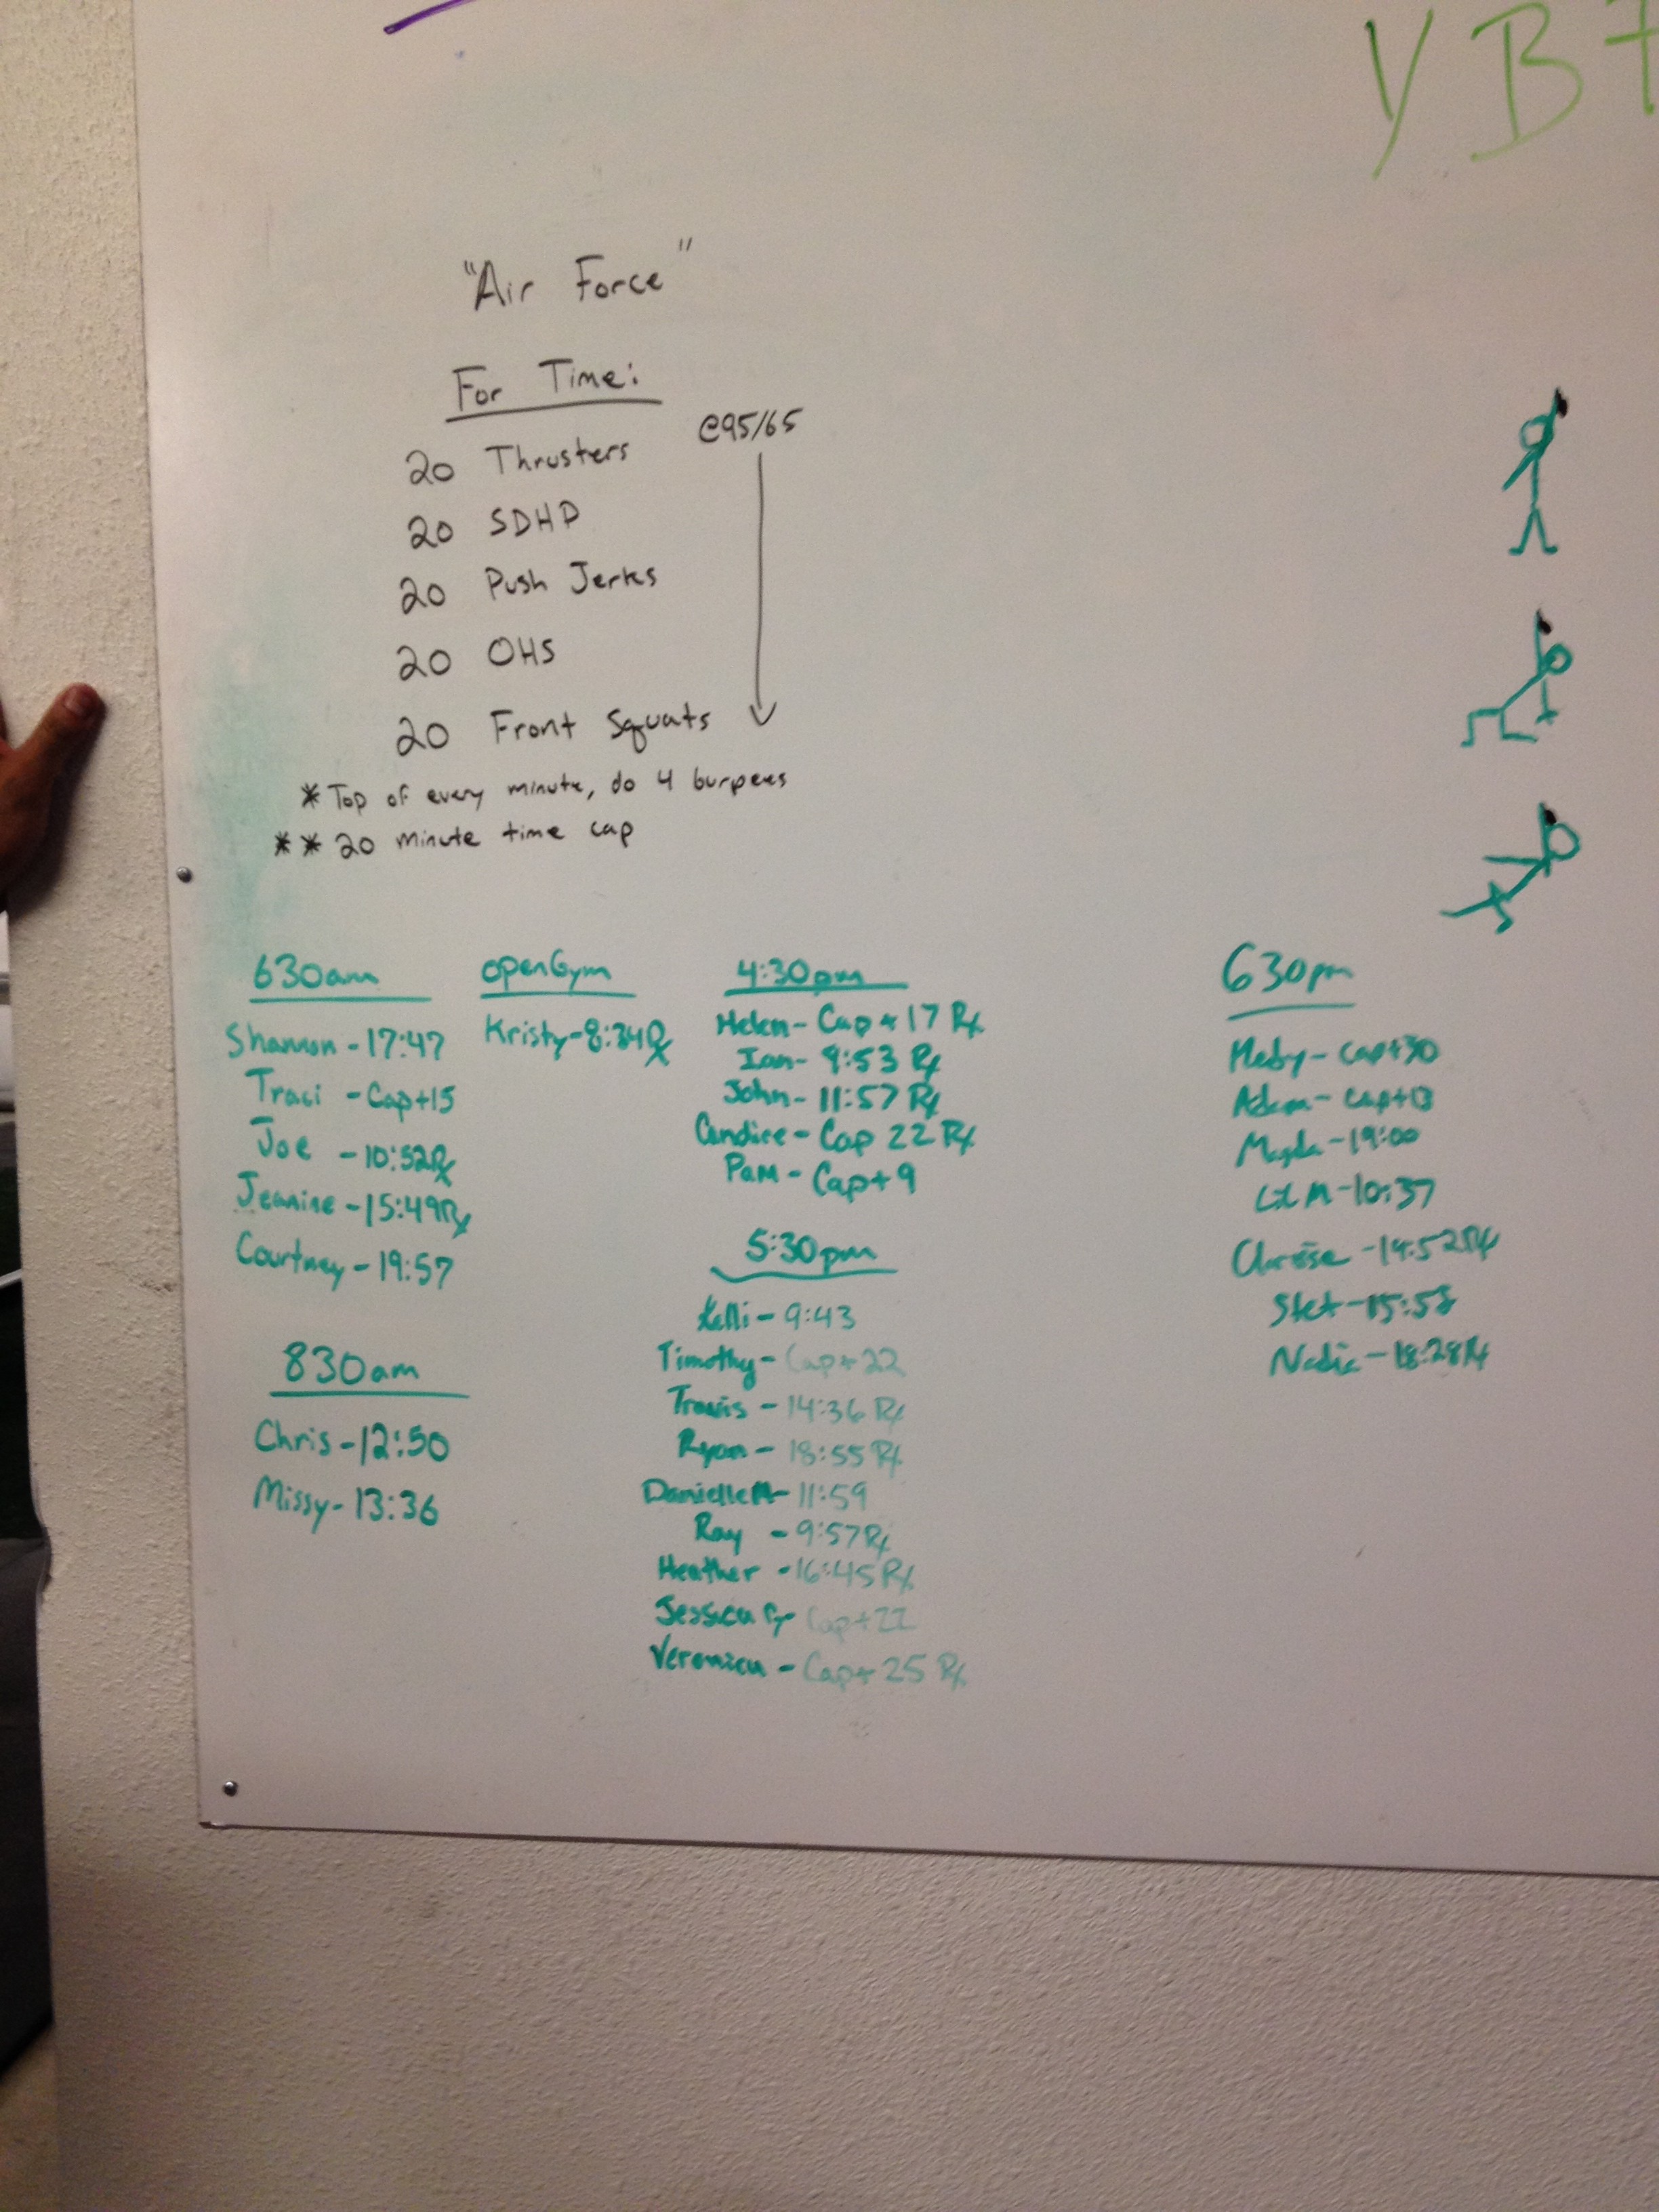 YB
"Air Force"
For Time:
@95/65
20 Thrusters
20 SDHP
20 Push Jerks
20 OHS
20 Front Squats
* Top of every minute, do 4 burpees
** 20 minute time cap
630am
Shannon - 17:47
Traci - Cap+15
Joe - 10:52Rx
Jeanine - 15:49Rx
Courtney - 19:57
830am
Chris - 12:50
Missy - 13:36
openGym
Kristy - 8:34Rx
4:30pm
Helen - Cap + 17 Rx
Ian - 9:53 Rx
John - 11:57 Rx
Candice - Cap 22 Rx
Pam - Cap+9
5:30pm
Kelli - 9:43
Timothy - Cap+22
Travis - 14:36 Rx
Ryan - 18:55 Rx
Danielle M - 11:59
Ray - 9:57Rx
Heather - 16:45 Rx
Jessica
Veronica - Cap+25 Rx
630pm
cap+30
Adam - cap+13
Magda - 19:00
Lil M - 10:37
Clarisse - 19:52Rx
15:53
Nadia - 18:28Rx